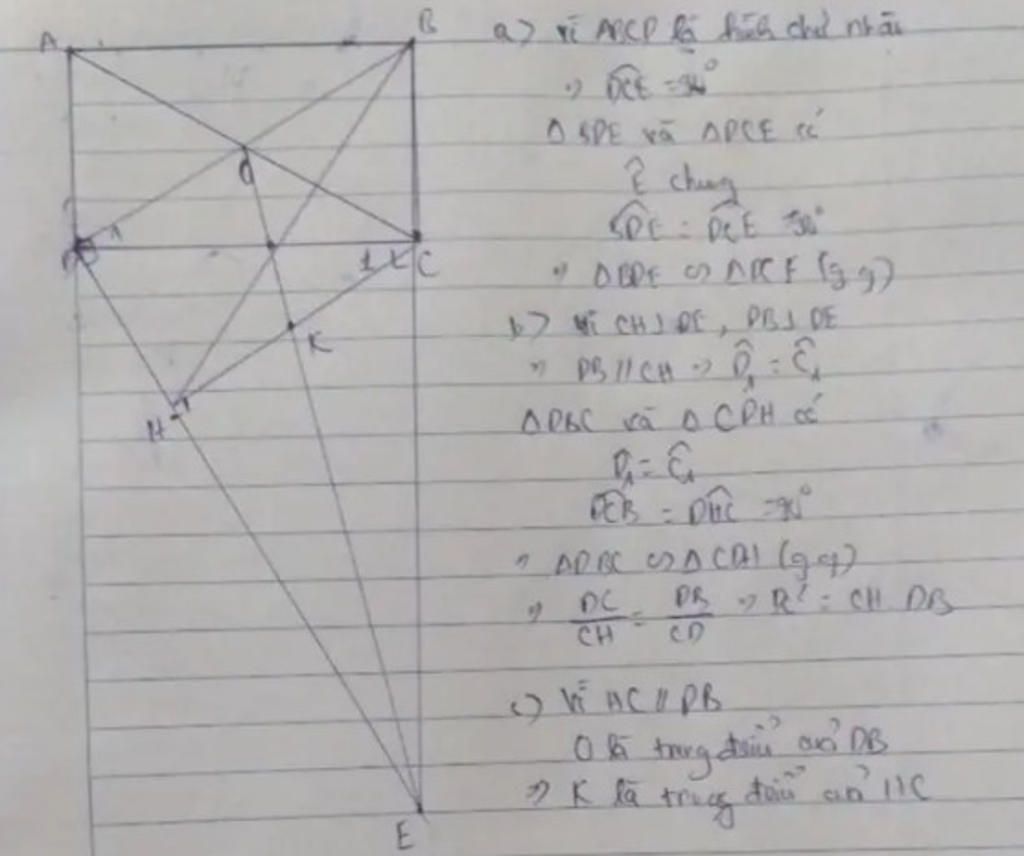 A
B
O
D
1
1 2 C
K
H
E
a) Vì ABCD là hình chữ nhật
=> DCE = 90°
Δ BDE và Δ DCE có
Ê chung
BDE = DCE = 90°
=> Δ BDE ∽ Δ DCE (g.g)
b) Vì CH ⊥ DE, DB ⊥ DE
=> DB // CH => D̂₁ = Ĉ₁
Δ DBC và Δ CDH có
D̂₁ = Ĉ₁
DCB = DHC = 90°
=> Δ DBC ∽ Δ CDH (g.g)
=> DC/CH = DB/CD => DC² = CH . DB
c) Vì HC // DB
O là trung điểm của DB
=> K là trung điểm của HC